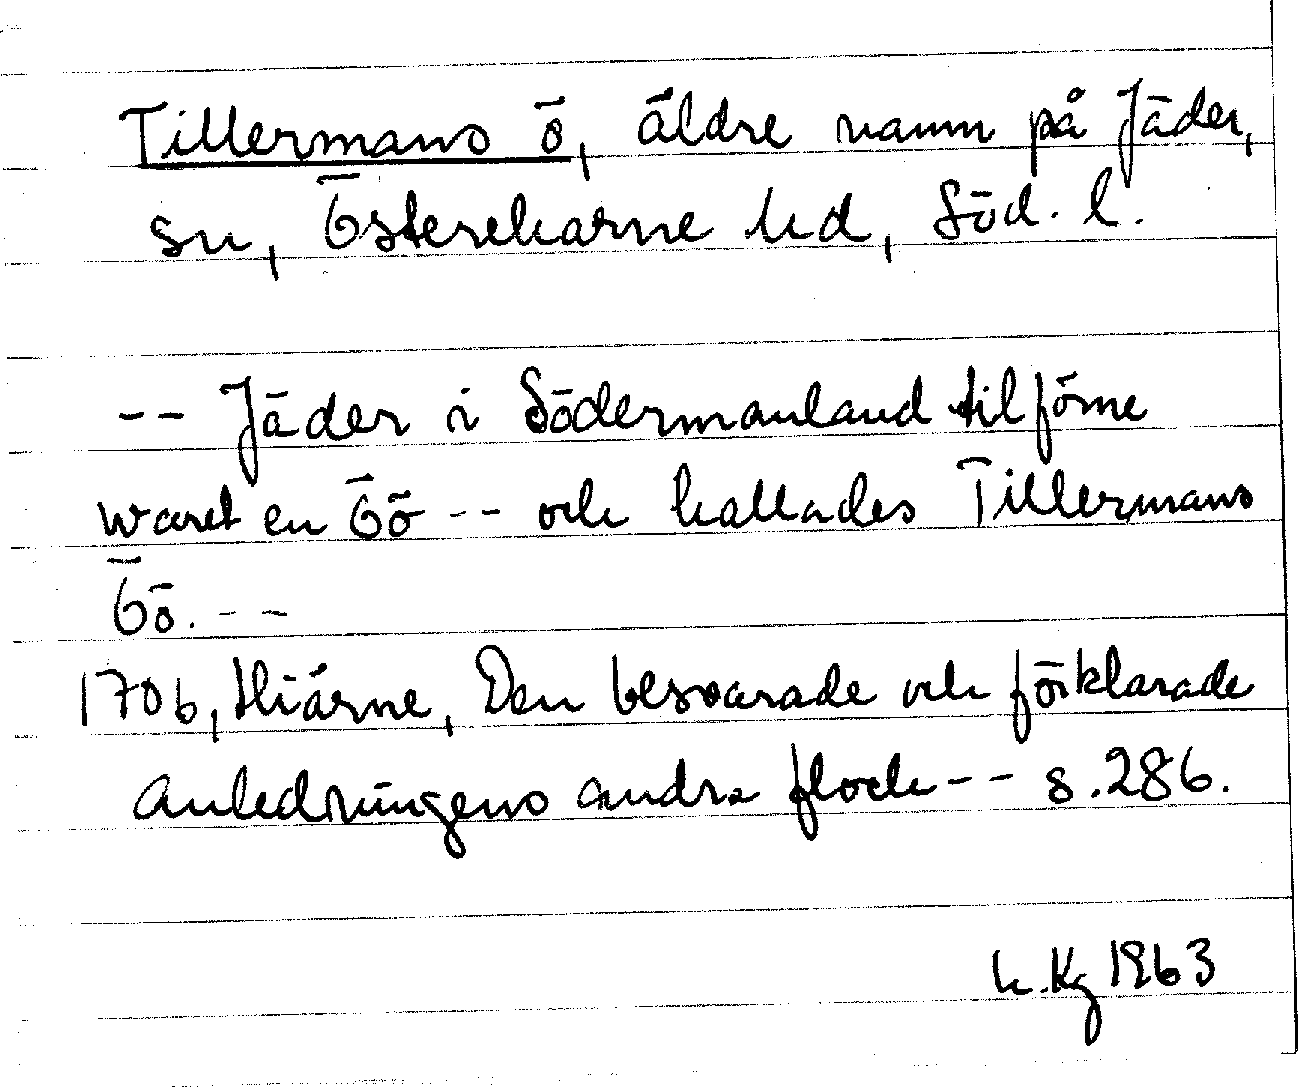 Tillermans ö, äldre namn på Jäder,
sn, Österrekarne hd, Söd. l.
-- Jäder i Södermanland tilförne
waret en Öö -- och kallades Tillermans
Öö. --
1706, Hiärne, Den besvarade och förklarade
anledningens andra flock -- s. 286.
k. Kg 1963